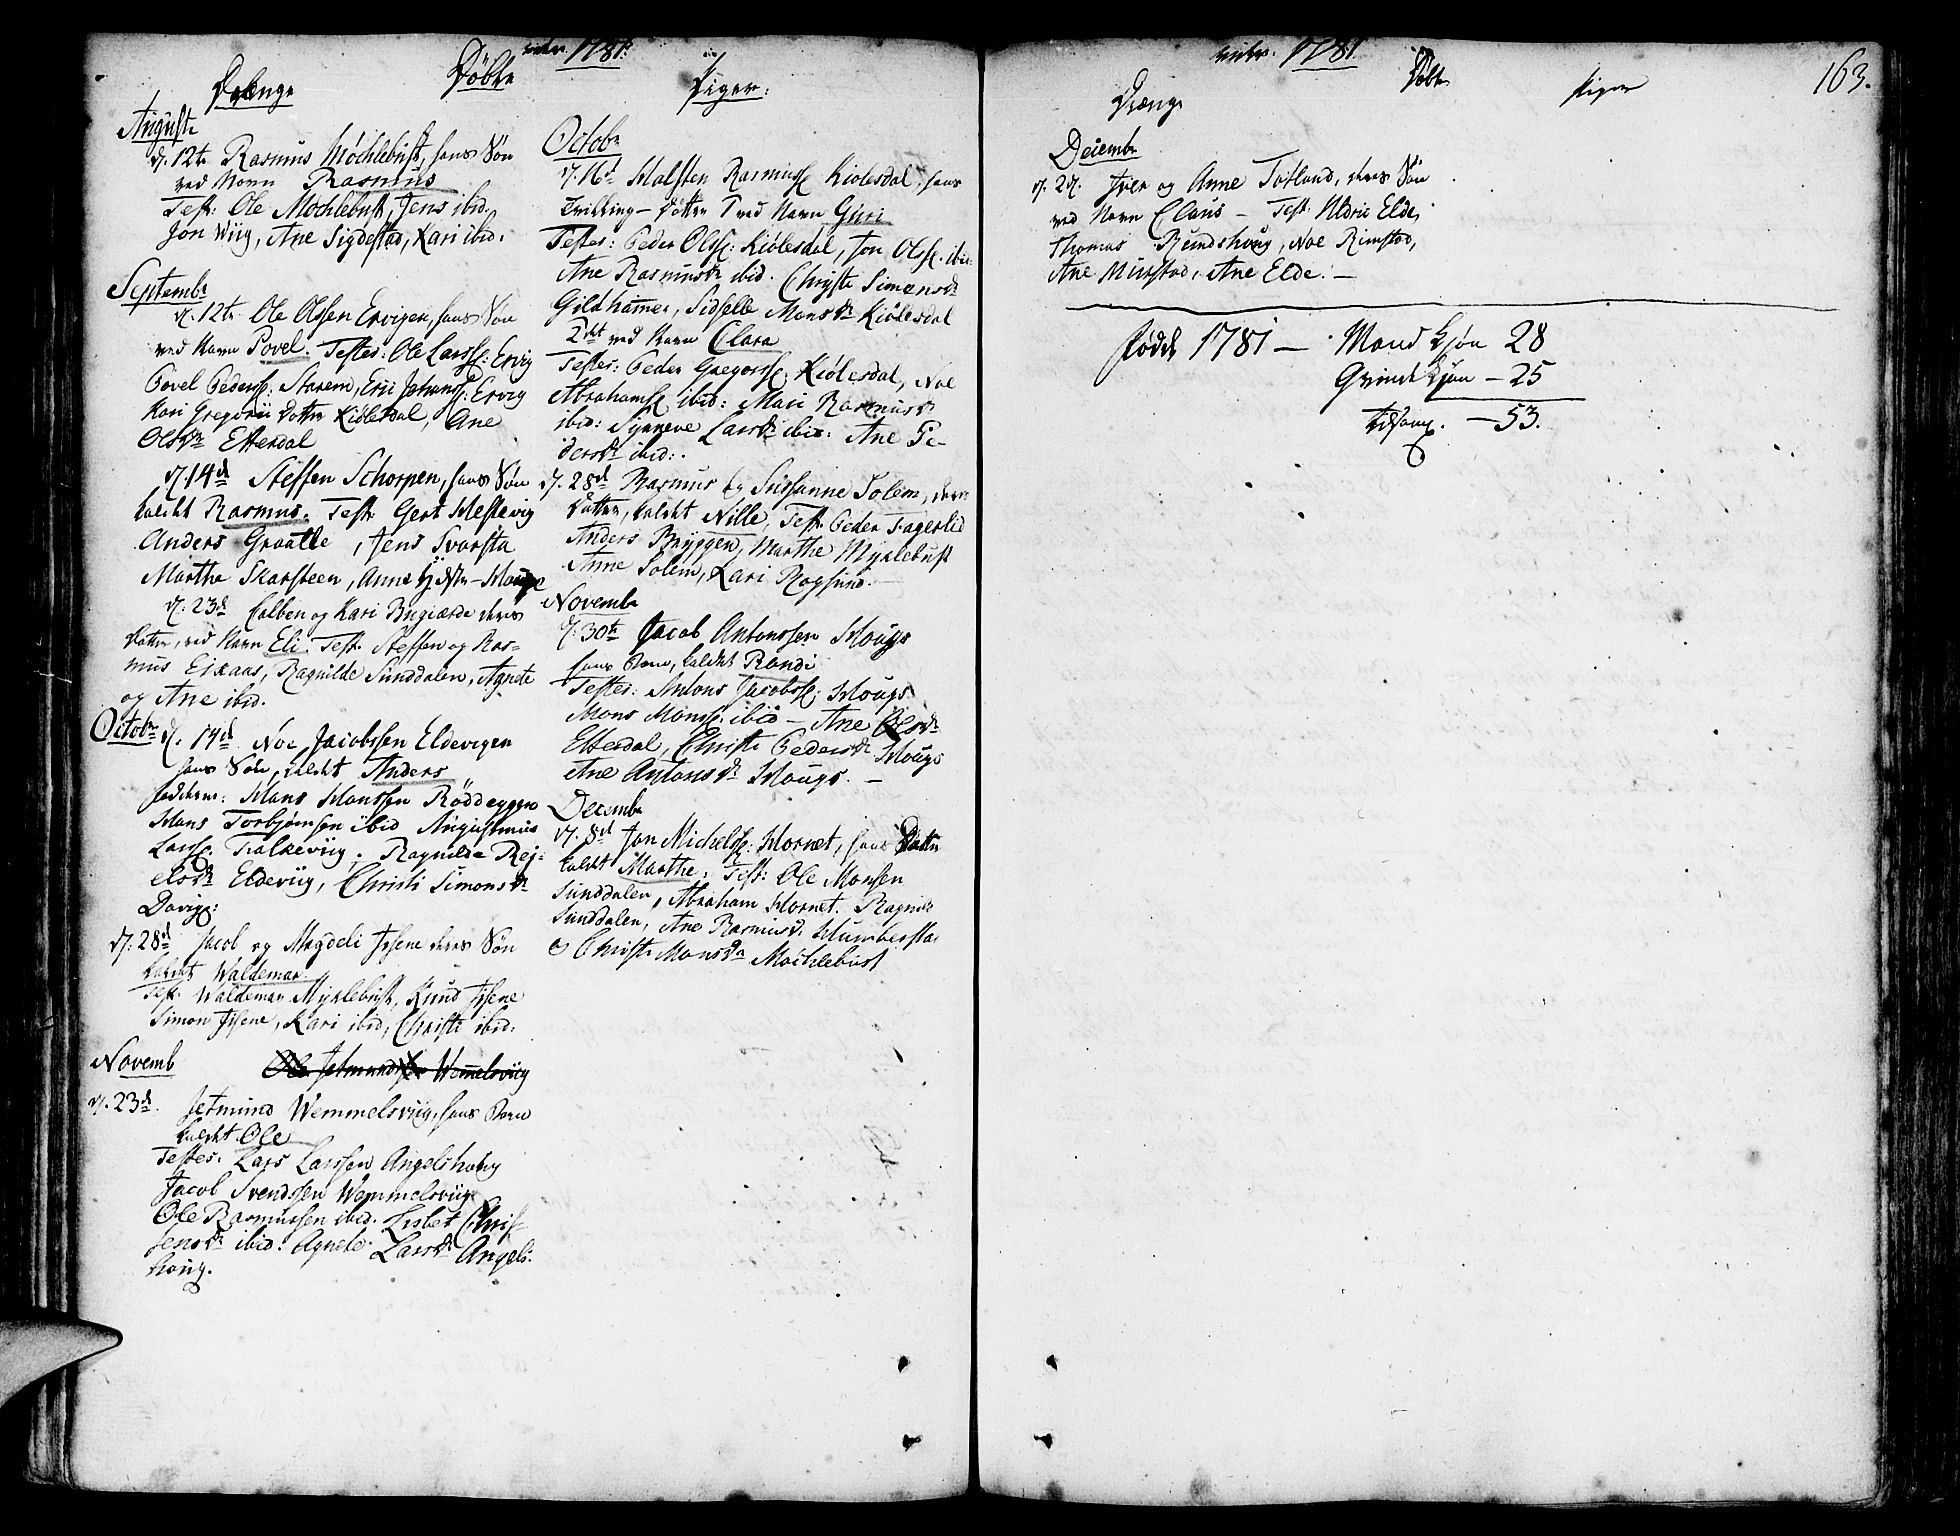 1781.
Døbte
Drænge
Piger:
Auguste
d. 12te Rasmus Möchlebust, hans Søn
ved Navn Rasmus
Test: Ole Möchlebust, Jens ibid.
Jon Wiig, Ane Sigdestad, Kari ibid.
Septembr
d. 12te Ole Olssen Ervigen, hans Søn
ved Navn Povel. Testes: Ole Larss: Ervig
Povel Pederss: Starem, Eric Johanss: Ervig
Kari Gregorii Datter Kiölesdal, Ane
Olsdr Etterdal
d. 14d Steffen Schorpen, hans Søn
kaldet Rasmus. Test. Gert Hestevig
Anders Graatle, Jens Svarsta
Marthe Skarsteen, Anne
d. 23d Colben og Kari Brygiærde deres
Datter, ved Navn Eli. Test. Steffen og Ras-
mus Eikaas, Ragnilde Sunddalen, Agnete
og Ane ibid.
Octobr d. 14d Noe Jacobssen Eldevigen
hans Søn, kaldet Anders
Faddere: Hans Hanssen Röddeggen
Hans Torbjørnsen ibid Augustinus
Larss. Falkeviig. Ragnilde Rej-
elsdr Eldeviig, Christi Simonsdr
Davig:
d. 28d Jacob og Magdeli Isene deres Søn
kaldet Waldemar.
Test: Waldemar Myklebust, Knud Isene
Simon Isene, Kari ibid, Christi ibid:
Novemb Ole Jetmundssen Wemmelsviig
d. 23d. Jetmund Wemmelsviig, hans Barn
kaldet Ole
Testes: Lars Larssen Angelshoug
Jacob Svendssen Wemmelsviig
Ole Rasmussen ibid. Lisbet Chris-
tensdr ibid: Agnete Larsdr Angels-
houg.
Octobr
d. 16d Halsten Rasmuss Kiölesdal, hans
Tvilling-Døtter 1 ved Navn Guri
Testes: Peder Olss: Kiölesdal, Jon Olss. ibid:
Ane Rasmusdr ibid. Christe Simonsdr
Gildhammer, Sidselle Monsdr Kiölesdal
2det ved Navn Clara
Testes: Peder Gregorss: Kiölesdal, Noe
Abrahamss ibid: Mari Rasmusdr
ibid: Synneve Larsdr ibid: Ane Pe-
dersdr ibid:
d. 28d Rasmus og Susanne Solem, deres
Datter, kaldet Nille, Test. Peder Fagerlid
Anders Bryggen, Marthe Myklebust
Anne Solem, Kari Rogsund.
Novembr
d. 30te Jacob Antonssen Hougs
hans Barn, kaldet Randi
Testes: Antons Jacobss: Hougs
Mons Monss: ibid - Ane Olsdr
Etterdal, Christi Pedersdr Hougs
Ane Antonsdr Hougs. -
Decembr
d. 8d Jon Michelss: Hornet, hans Datter
kaldet Marthe. Test: Ole Monsen
Sunddalen, Abraham Hornet. Ragnilde
Sunddalen, Ane Rasmusd. Humberstad
& Christi Monsdr Möchlebust
1781
Døbte
163.
Drænge
Piger
Decembr
d. 27. Iver og Anne Totland, deres Søn
ved Navn Claus - Test: Aldric Elde,
Thomas Rundshoug, Noe Rimstad,
Ane Murstad, Ane Elde. -
Fødde 1781 - Mand Kjøn 28
Qvinde Kjøn - 25
tilsam. - 53.